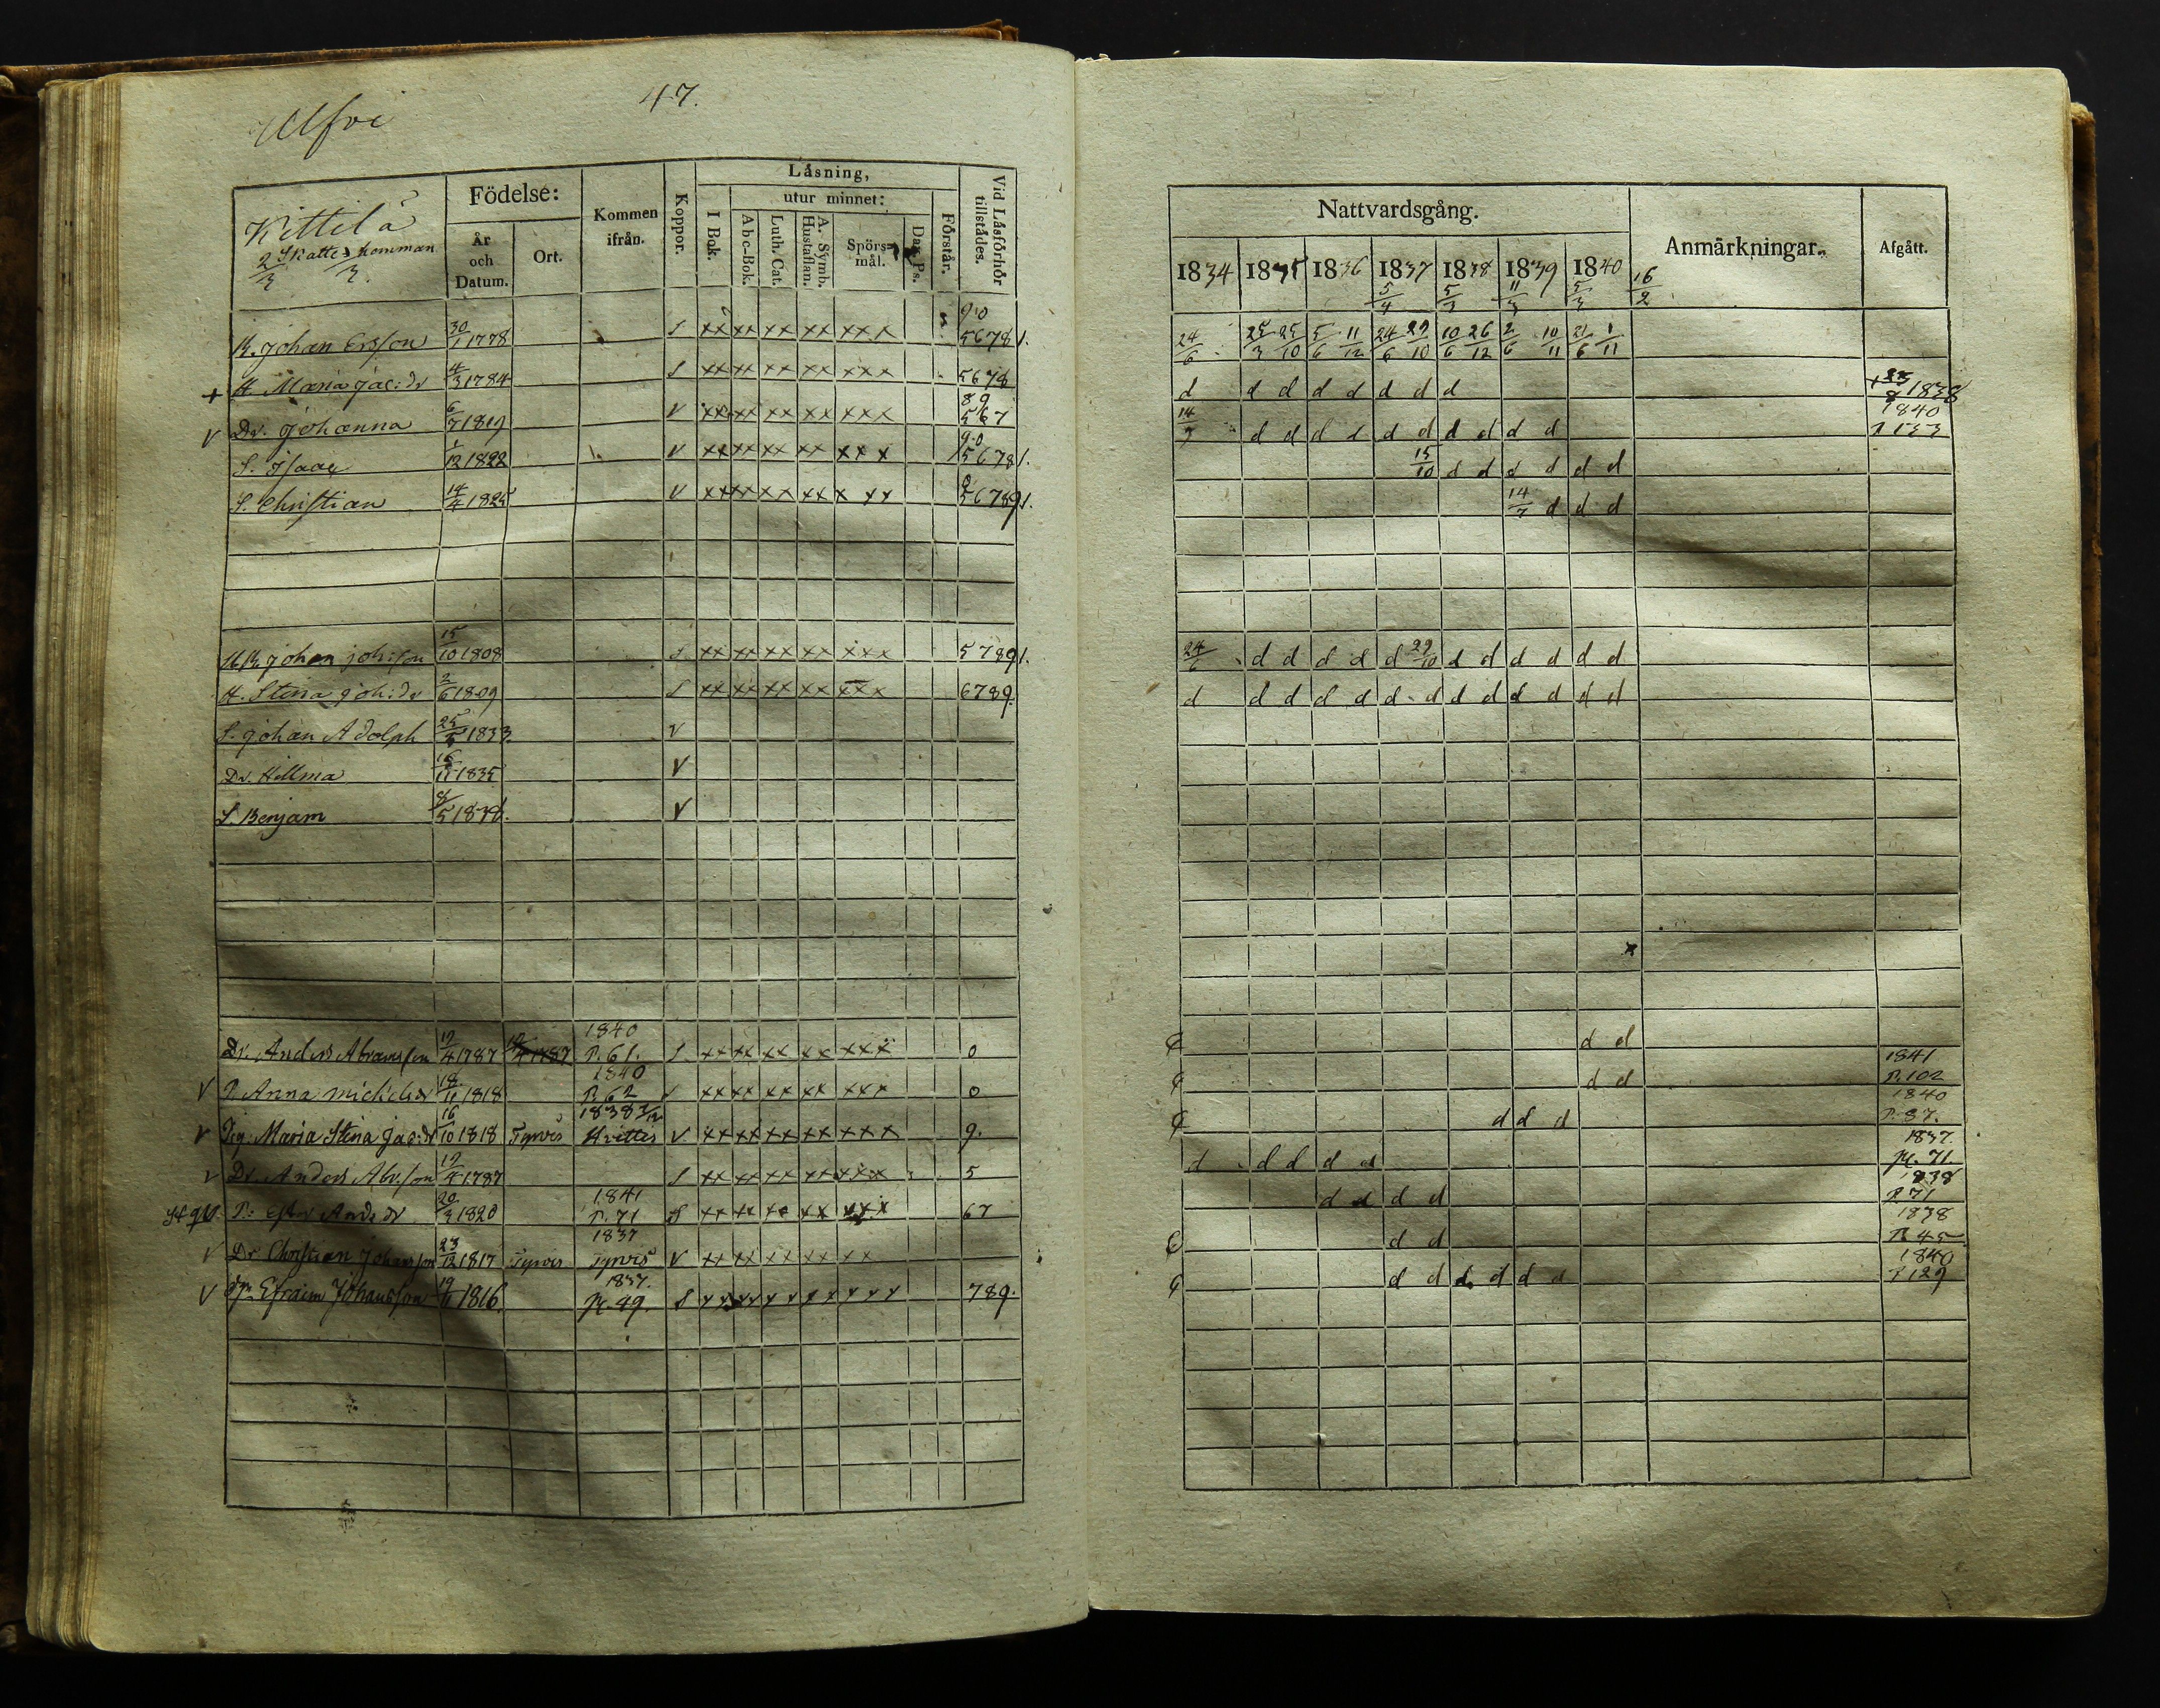 Ulfvi 47.
Kittilä
2/3 Skatte hemman 3.
Födelse:
År och Datum.
Ort.
Kommen ifrån.
Koppor.
Läsning,
I Bok.
utur minnet:
Abc-Bok.
Luth. Cat.
A. Symb. Hustaflan.
Spörsmål.
Dav. Ps.
Förstår.
Vid Läsförhör tillstädes.
B. Johan Ersson 30/1 1778 S xx xx xx xx xxx 90 5678 1.
+ H. Maria Jac:dr 4/3 1784 S xx xx xx xx xxx 5678
V Dr. Johanna 1819 V xx xx xx xx xxx 89 567
S. Isaac 1/12 1822 V xx xx xx xx xxx 90 5678 1.
S. Christian 14/4 1825 V xx xx xx xx xxx 56789 1.
Johan Joh:son 15/10 1808 S xx xx xx xx xxx 5789 1.
H. Stina Joh:dr 2/6 1809 S xx xx xx xx xxx 6789.
S. Johan Adolph 1833. V
Dr. Hillma 1835 V
S. Benjam 8/5 1838. V
Dr. Anders Abramsson 1787 1840 P. 61. S xx xx xx xx xxx 0
V P. Anna Mich:dr 18/11 1818 1840 P. 62 xx xx xx xx xxx 0
V Pig. Maria Stina Jac:dr 16/10 1818 Tyrvis 1838 Hvittis V xx xx xx xx xxx 9.
V Dr. Anders Abr.son 1787 S xx xx xx xx xxx 5
P. And:dr 1820 1841 P. 71 S xx xx xx xx xxx 67
V Dr Christian Johansson 23/12 1817 Tyrvis 1837 Tyrvis V xx xx xx xx xx
V Efraim Johansson 1816. 1837. P. 49. S xx xx xx xx xxx 789.
Nattvardsgång.
Anmärkningar.
Afgått.
1834 1835 1836 1837 1838 1839 1840
24/6 25/3 25/10 5/6 11/12 24/6 29/10 10/6 26/12 2/6 10/11 21/6 1/11
d d d d d d d d 1838
d d d d d d d d d d 1840
15/10 d d d d d d
14/7 d d d
24/6 d d d d d 29/10 d d d d d d
d d d d d d d d d d d d d
d d
d d 1841 P. 102
d d d 1840 P. 87.
d d d d d 1837. P. 71.
d d d d 1838 P. 71
d d 1838 P. 45
d d d d d d 1840 P 129